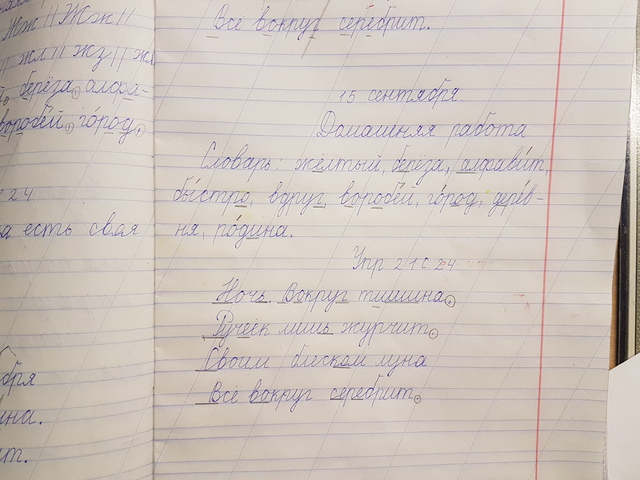 Жж || Жж ||
|| жл || жз || жл
берёза, алфа-
воробей, город,
24
есть свая
бря
ина.
ит.
Всё вокруг серебрит.
15 сентября.
Домашняя работа
Словарь: жёлтый, берёза, алфавит,
быстро, вдруг, воробей, город, дерев-
ня, родина.
Упр 21 с 24
Ночь. Вокруг тишина.
Ручеёк лишь журчит.
Своим блеском луна
Всё вокруг серебрит.